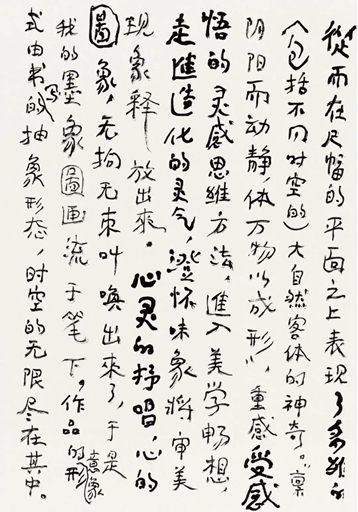 從而在尺幅的平面之上表現了多維的
(包括不同时空的)大自然客体的神奇。禀
阴阳而动静，体万物以成形”，重感受感
悟的灵感思維方法，進入美学畅想，
走進造化的灵气，澄怀味象将审美
現象释放出來。心灵的抒唱，心的
圖象，无拘无束叫喚出來了，于是
我的墨象圖画流于笔下。作品的形意象
式由书写的抽象形态，时空的无限尽在其中。